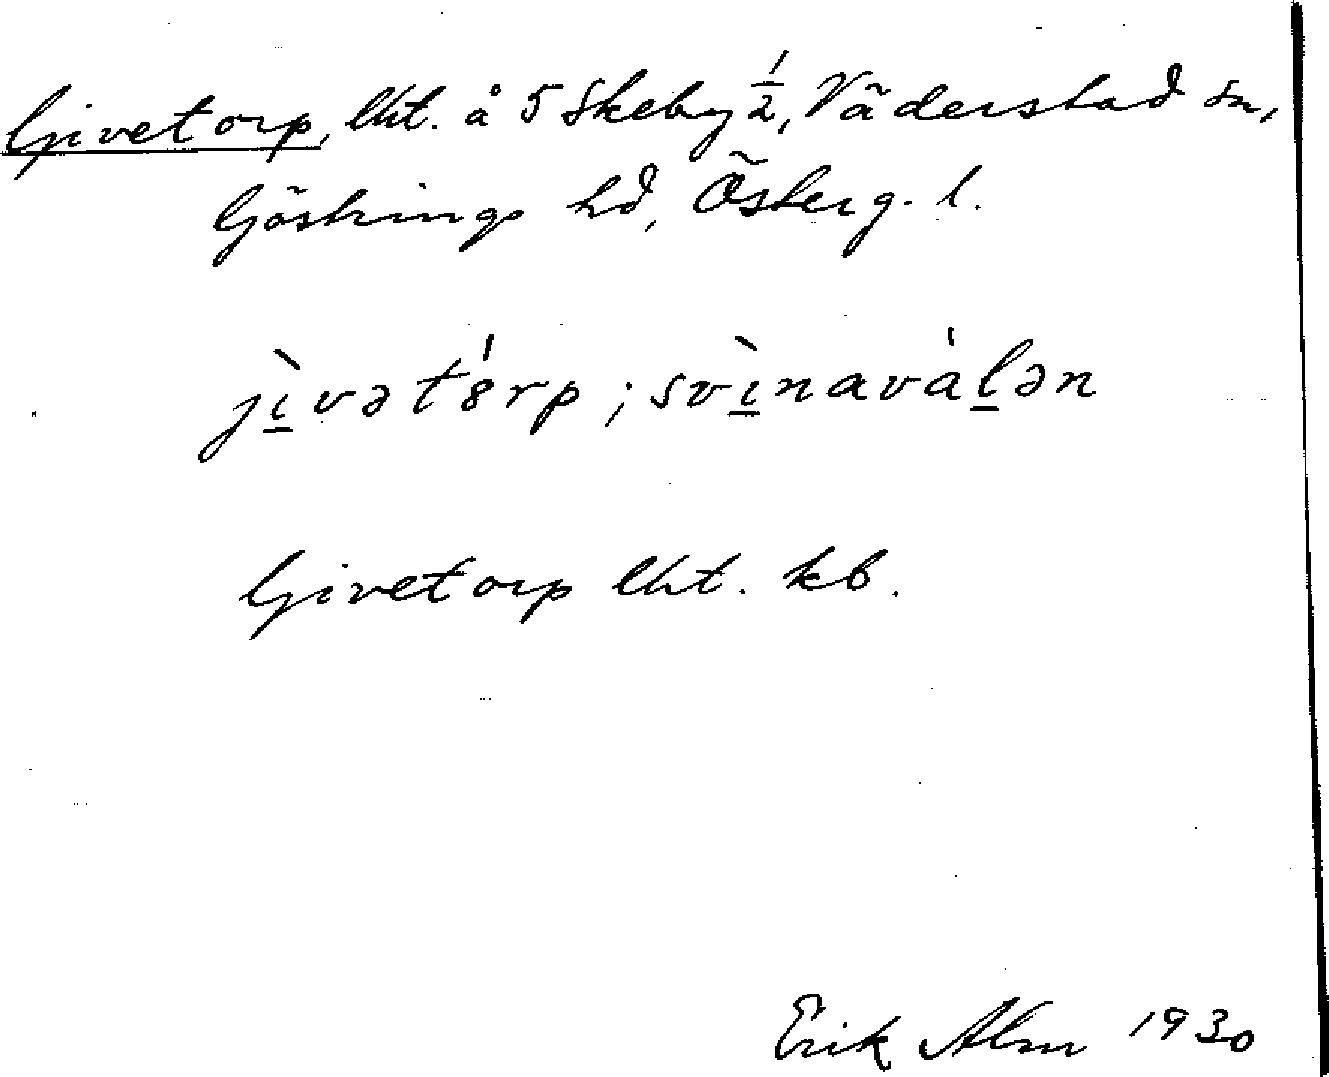 Givetorp, lht. å 5 Skeby ½, Väderstad sn,
Göstrings hd, Österg. l.
jì̱vət8́rp; svì̱navàḻən
Givetorp lht. kb.
Erik Alm 1930